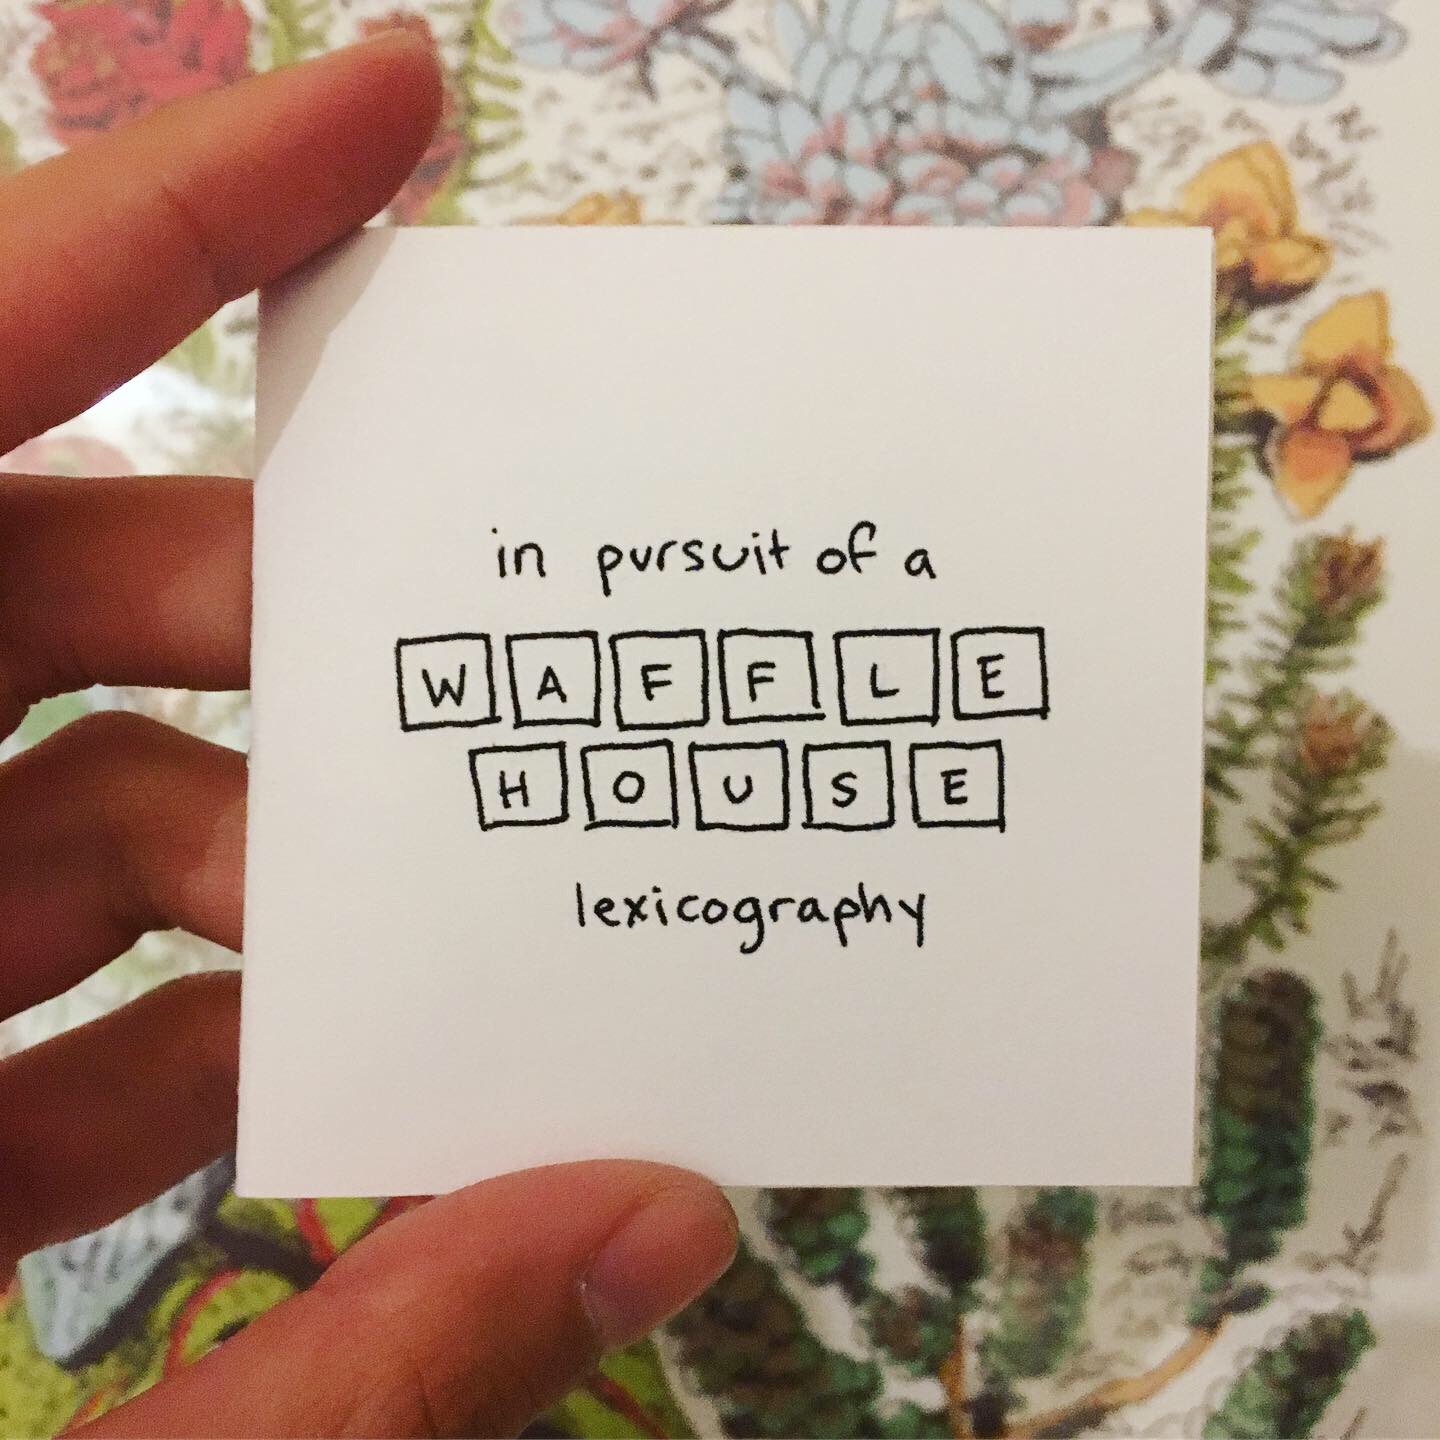 in pursuit of a
WAFFLE
HOUSE
lexicography